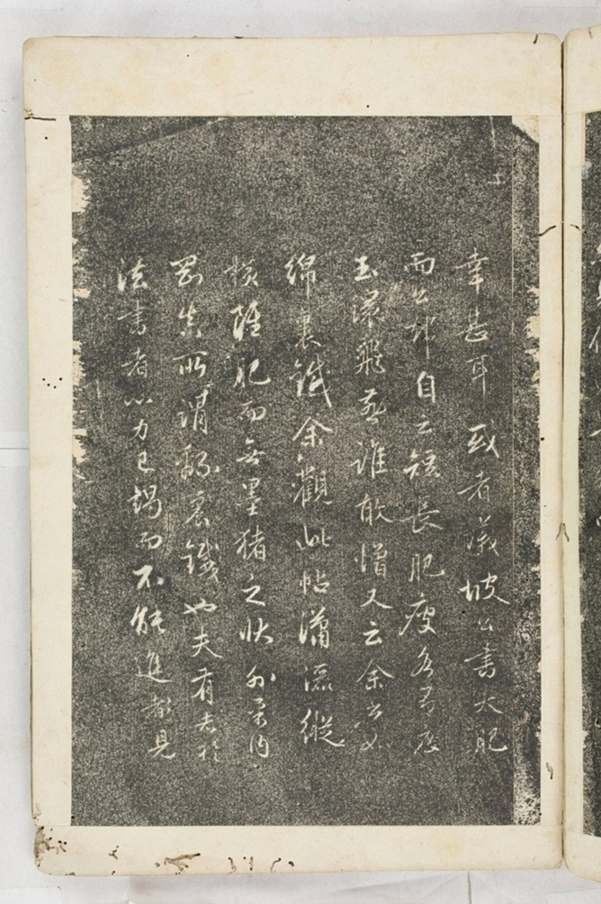 幸甚耳或者議坡公書太肥
而公卻自云短長肥瘦各有度
玉環飛燕誰敢憎又云余書如
綿裹鐵余觀此帖瀟灑縱
橫雖肥而無墨豬之狀外柔内
剛真所謂綿裹鐵也夫有志於
法書者心力已竭而不能進見